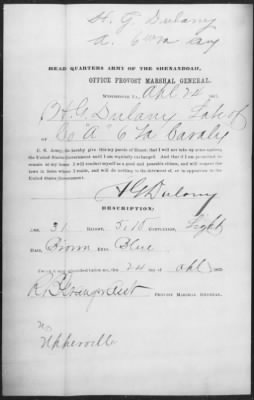 H. G. Dulany
A. 6 Va Cav
HEAD QUARTERS ARMY OF THE SHENANDOAH,
OFFICE PROVOST MARSHAL GENERAL.
WINCHESTER VA, Apl 24 186
I, H. G. Dulany Late of
Co "A" 6 Va Cavalry
C. S. Army, do hereby give this my parole of Honor, that I will not take up arms against
the United States Government until I am regularly exchanged. And that if I am permitted
to remain at my home I will conduct myself as a good and peaceable citizen, and will respect the
laws in force where I reside, and will do nothing to the detriment of, or in opposition to the
United States Government.
H G Dulany
DESCRIPTION:
AGE, 31 HEIGHT, 5.10 COMPLEXION, Light
HAIR, Brown EYES, Blue
Sworn and subscribed before me, this 24 day of Apl 186
PROVOST MARSHAL GENERAL.
Upperville